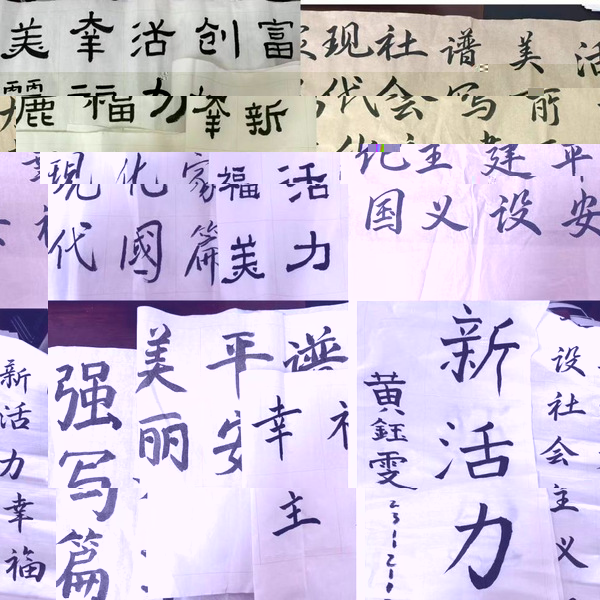 美幸活创富
麗福力幸新
现社谱美活
代会写丽
化主建平
国义设安
現化家福活
代國篇美力
新活力幸福
强写篇
美丽
平安
谱
幸
主
新活力
黄鈺雯
231121
设社会主义